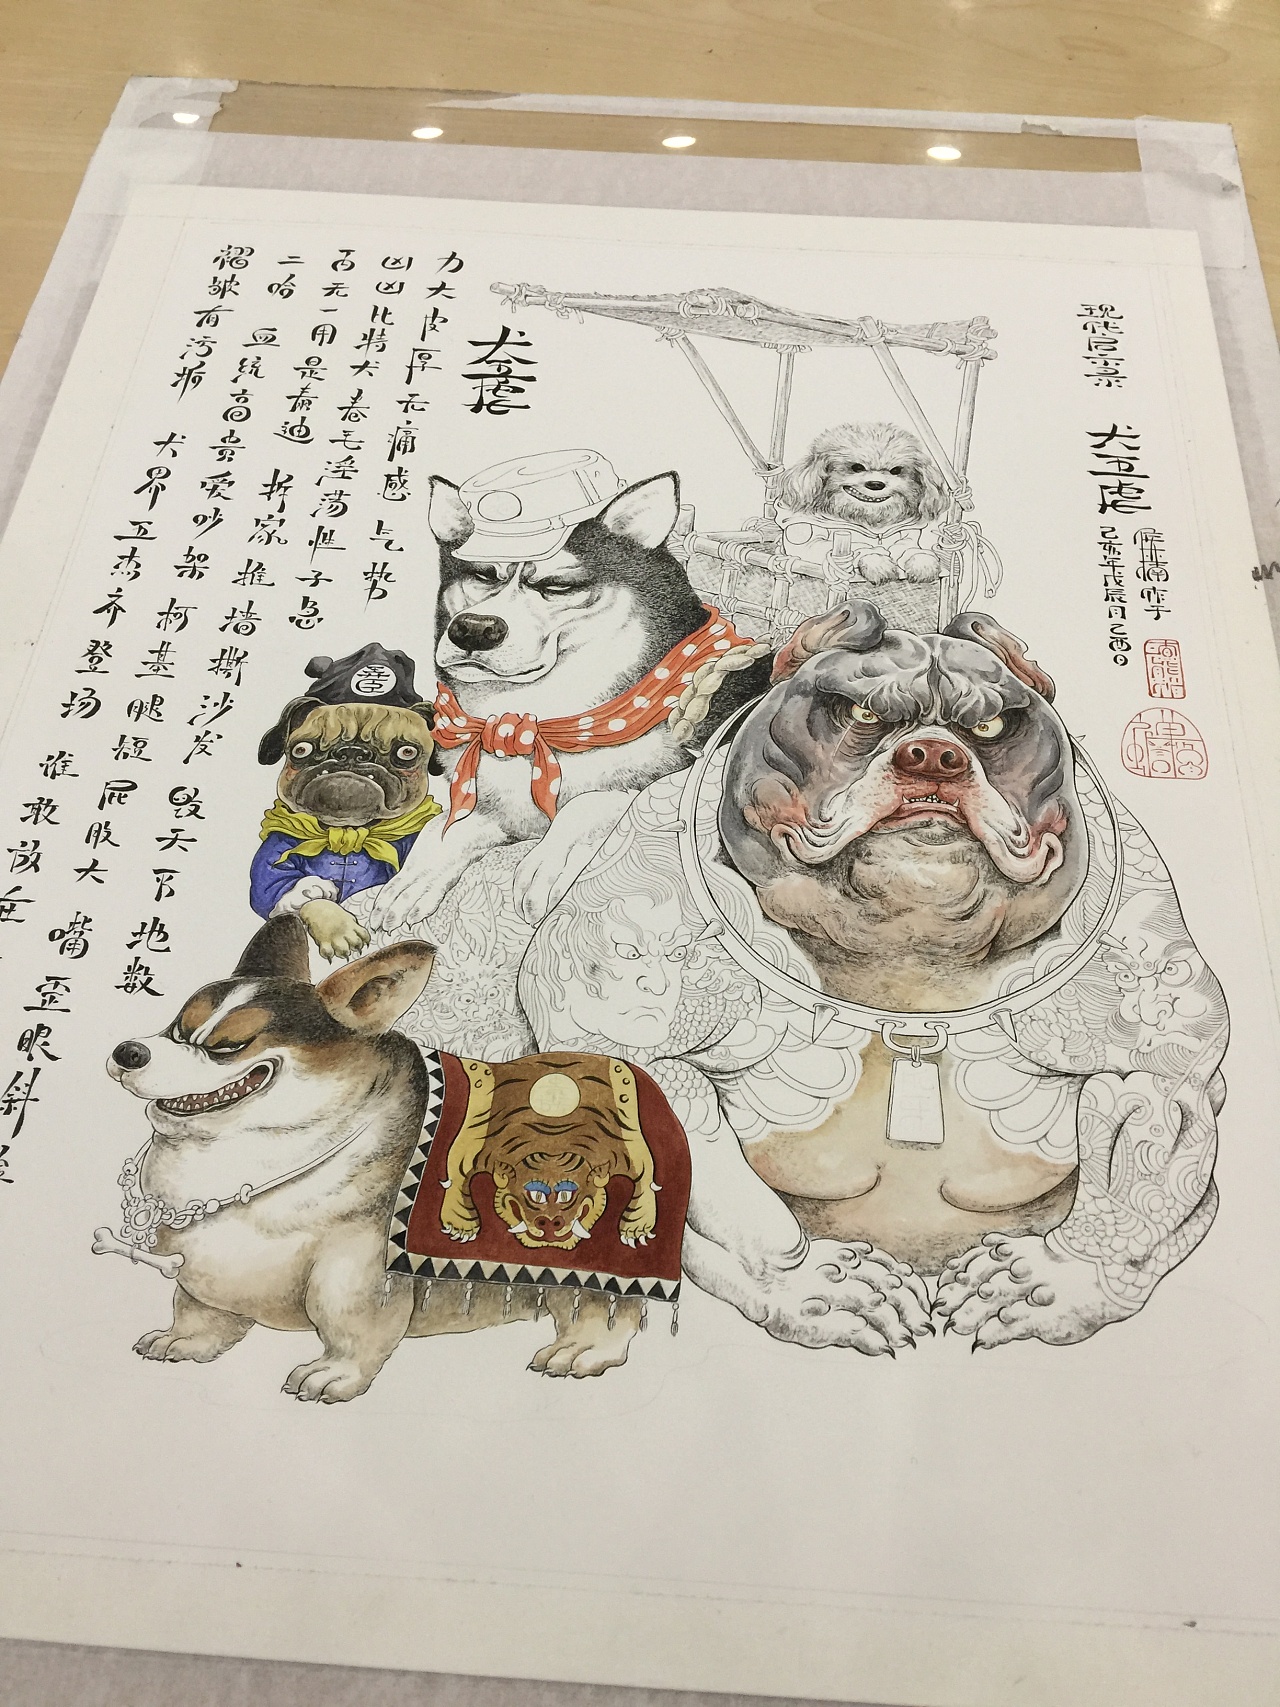 现代启示录 犬五虎
己亥年戊辰月己酉日
犬五虎
力大皮厚无痛感 气势
凶凶比特犬 卷毛淫荡性子急
百无一用是泰迪 拆家推墙撕沙发 毁天下地数
二哈 血统高贵爱吵架 柯基腿短屁股大 嘴歪眼斜
褶皱有污垢 犬界五杰齐登场 谁敢放